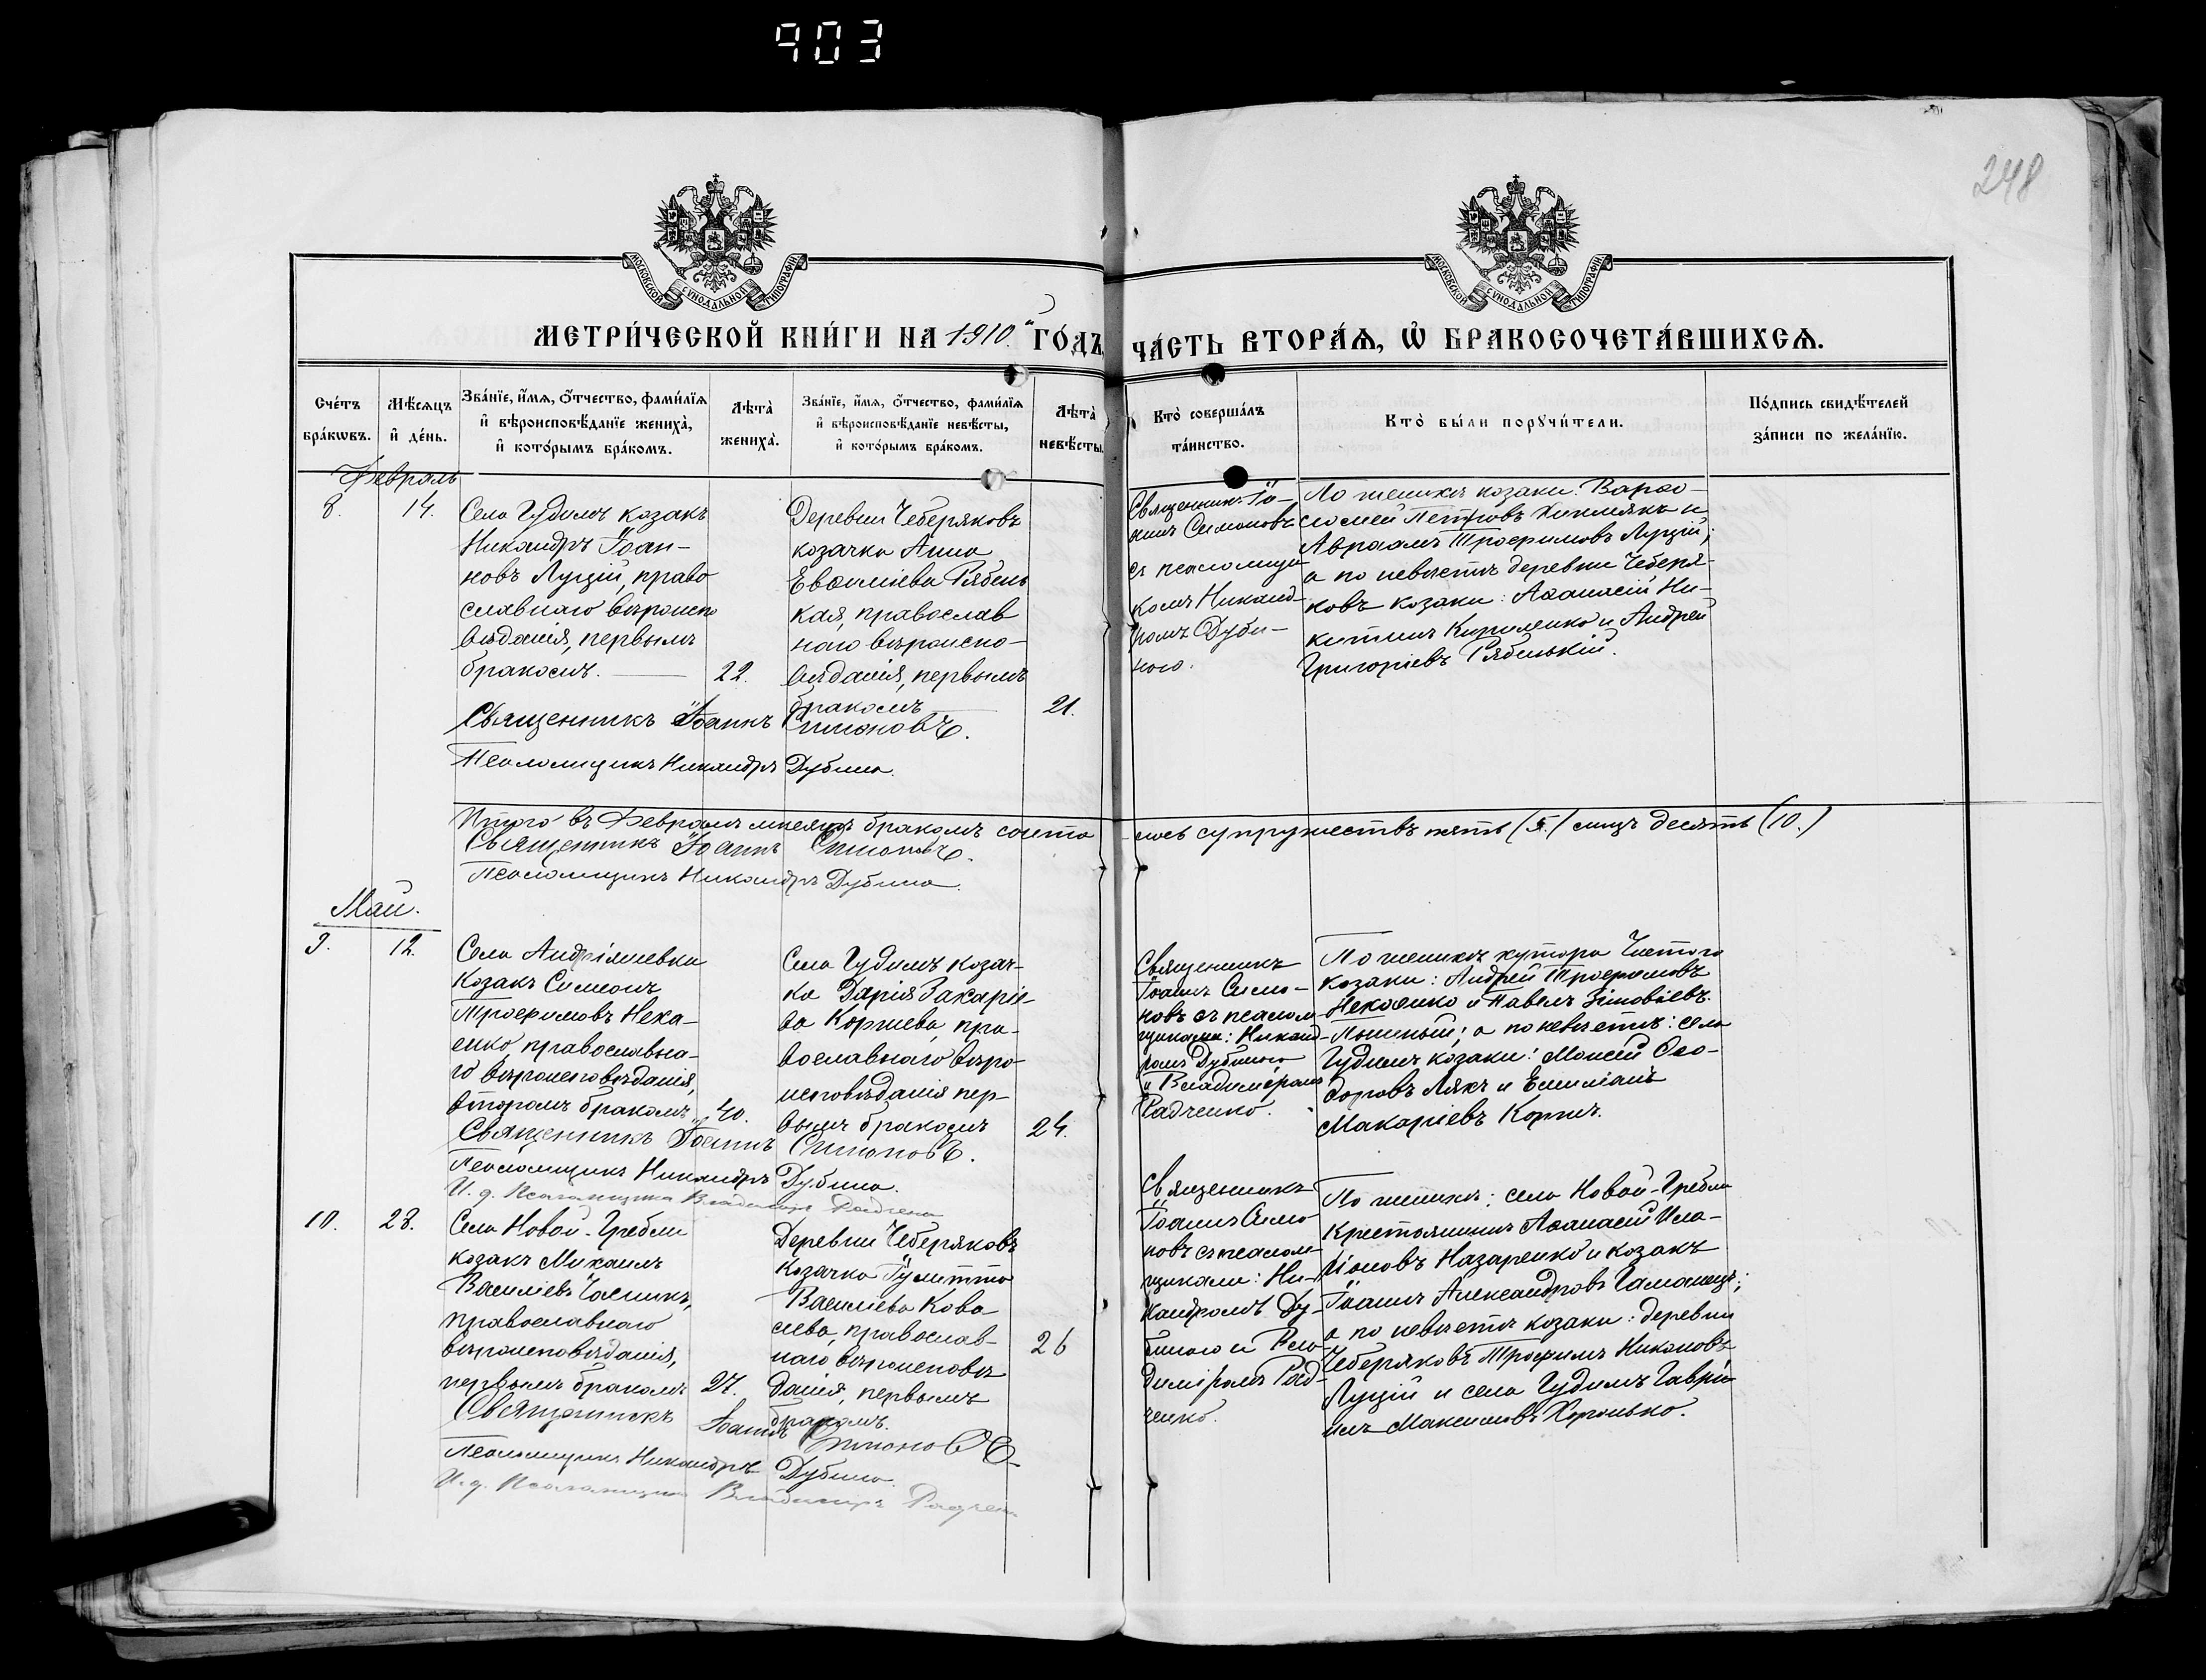 903
248
МОСКОВСКОЙ СѴНОДАЛЬНОЙ ТИПОГРАФІИ
МОСКОВСКОЙ СѴНОДАЛЬНОЙ ТИПОГРАФІИ
МЕТРИ́ЧЕСКОЙ КНИ́ГИ НА 1910 ГО́ДЪ,
ЧА́СТЬ ВТОРА́Ѧ, Ѡ҆ БРАКОСОЧЕТА́ВШИХСѦ.
Сче́тъ
бра́кѡвъ.
Мѣ́сѧцъ
и҆ де́нь.
Зва́нїе, и҆́мѧ, ѻ҆́тчество, фами́лїѧ
и҆ вѣроисповѣ́данїе жениха̀,
и҆ кото́рымъ бра́комъ.
Лѣта̀
жениха̀.
Зва́нїе, и҆́мѧ, ѻ҆́тчество, фами́лїѧ
и҆ вѣроисповѣ́данїе невѣ́сты,
и҆ кото́рымъ бра́комъ.
Лѣта̀
невѣ́сты.
Кто̀ соверша́лъ
та́инство.
Кто̀ бы́ли порꙋчи́тели.
По́дпись свидѣ́телей
за́писи по жела́нїю.
Февраль
8.
14.
Села Гудимъ козакъ
Никандръ Іоан-
новъ Луцій, право
славнаго вѣроиспо
вѣданія, первымъ
бракомъ.
22.
Деревни Чеберяковъ
козачка Анна
Евѳиміева Рябень
кая, православ
наго вѣроиспо-
вѣданія, первымъ
бракомъ
21.
Священникъ Іо-
аннъ Симоновъ
съ псаломщи
комъ Никанд-
ромъ Дуби-
ною.
По женихѣ козаки: Варѳо-
ломей Петровъ и
Авраамъ Трофимовъ Луцій;
а по невѣстѣ деревни Чеберя-
ковъ козаки: Аѳанасій Ни-
китинъ Кириленко и Андрей
Григоріевъ Рябенькій.
Священникъ Іоаннъ Симоновъ.
Псаломщикъ Никандръ Дубина.
Итого въ Февралѣ мѣсяцѣ бракомъ сочета
лось супружествъ пять (5.) лицъ десять (10.)
Священникъ Іоаннъ Симоновъ.
Псаломщикъ Никандръ Дубина.
Май.
9.
12.
Села Андріяшевки
козакъ Симеонъ
Трофимовъ Неха-
енко, православна-
го вѣроисповѣданія,
вторымъ бракомъ
40.
Села Гудимъ козач-
ка Дарія Захаріе-
ва Коржева, пра-
вославнаго вѣро-
исповѣданія пер-
вымъ бракомъ
24.
Священникъ
Іоаннъ Симо-
новъ съ псалом-
щиками: Никанд-
ромъ Дубиною
и Владиміромъ
Радченко.
По женихѣ хутора
козаки: Андрей Трофимовъ
Нехаенко и Павелъ Зіновіевъ
а по невѣстѣ: села
Гудимъ козаки: Моисей Ѳео-
доровъ Лякъ и Емиліанъ
Макаріевъ Коржъ.
Священникъ Іоаннъ Симоновъ.
Псаломщикъ Никандръ Дубина.
И. д. Псаломщика Владиміръ Радченко
10.
23.
Села Новой-Гребли
козакъ Михаилъ
Василіевъ Часникъ,
православнаго
вѣроисповѣданія,
первымъ бракомъ
27.
Деревни Чеберяковъ
козачка Іулитта
Василіева Кова
лева, православ-
наго вѣроисповѣ
данія, первымъ
бракомъ.
26
Священникъ
Іоаннъ Симо-
новъ съ псалом-
щиками: Ни-
кандромъ Ду-
биною и Вла-
диміромъ Рад-
ченко.
По женихѣ: села Новой-Гребли
крестьянинъ Аѳанасій Ила-
ріоновъ Назаренко и козакъ
Іоаннъ Александровъ Гаманецъ;
а по невѣстѣ козаки: деревни
Чеберяковъ Трофимъ Никоновъ
Луцій и села Гудимъ Гаврі-
илъ Максимовъ Харонько.
Священникъ Іоаннъ Симоновъ.
Псаломщикъ Никандръ Дубина.
И. д. Псаломщика Владиміръ Радченко